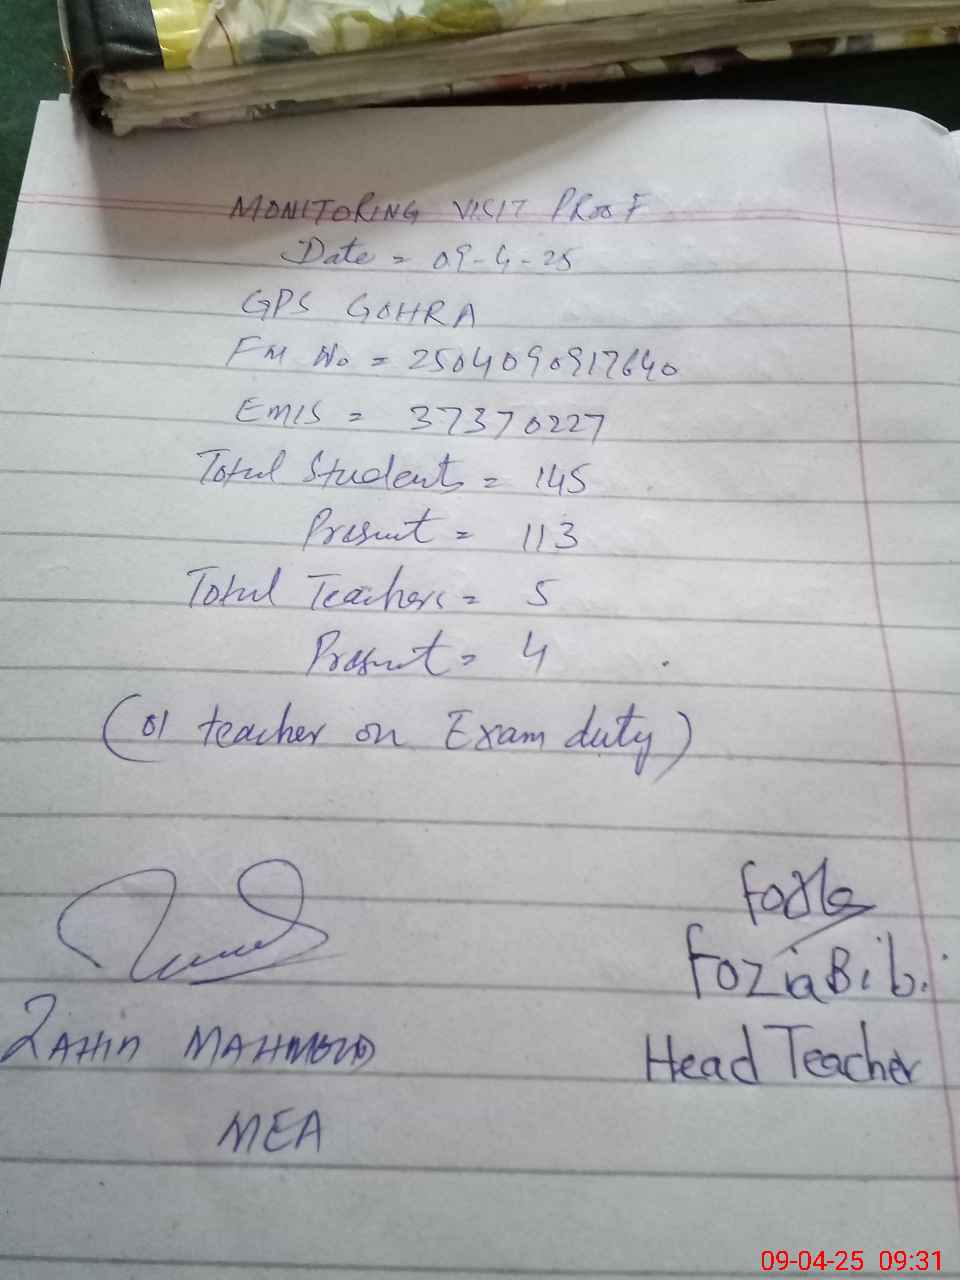 MONITORING VISIT PROOF
Date = 09-4-25
GPS GOHRA
FM No = 2504090917640
EMIS = 37370227
Total Students = 145
Present = 113
Total Teachers = 5
Present = 4
(01 teacher on Exam duty)
Fozia Bibi
ZAHID MAHMOOD
Head Teacher
MEA
09-04-25 09:31